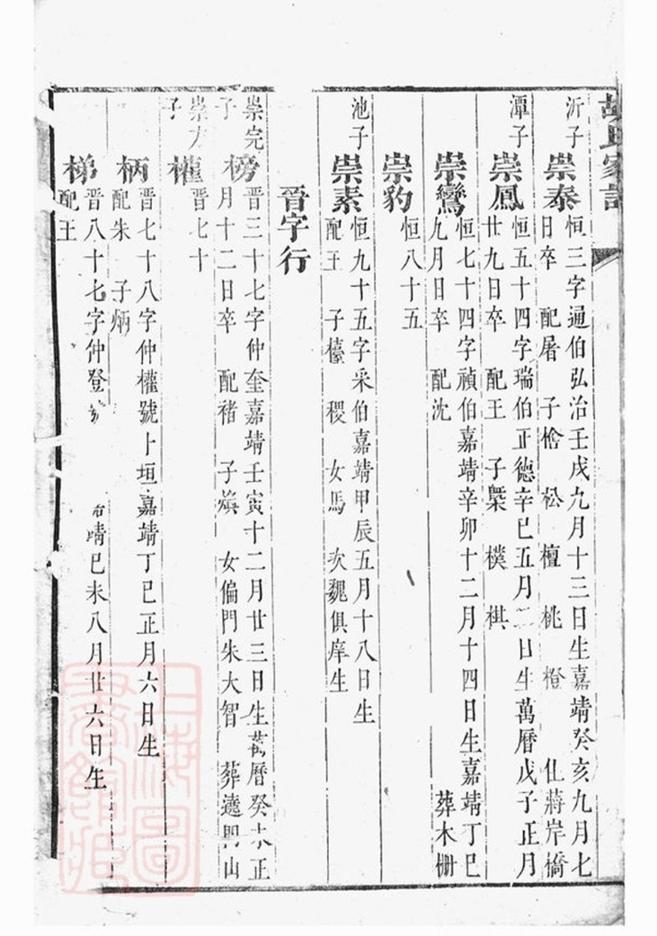 胡氏家譜
沂子
崇泰 恒三字通伯弘治壬戌九月十三日生嘉靖癸亥九月七
日卒 配屠 子桧 松 檀 桃 橙 仩蔣岸橋
潭子
崇鳳 恒五十四字瑞伯正德辛巳五月二日生萬曆戊子正月
廿九日卒 配王 子槩 樸 祺
崇鸞 恒七十四字禎伯嘉靖辛卯十二月十四日生嘉靖丁巳
九月日卒 配沈 葬木栅
崇豹 恒八十五
池子
崇素 恒九十五字采伯嘉靖甲辰五月十八日生
配王 子檯 稷 女馬 次魏俱庠生
晉字行
崇完子
榜 晉三十七字仲奎嘉靖壬寅十二月廿三日生萬曆癸未正
月十二日卒 配褚 子熉 女偏門朱大智 葬遶門山
崇方子
權 晉七十
柄 晉七十八字仲權號卜垣嘉靖丁巳正月六日生
配朱 子炳
梯 晉八十七字仲登 靖己未八月廿六日生
配王
上海圖書館藏